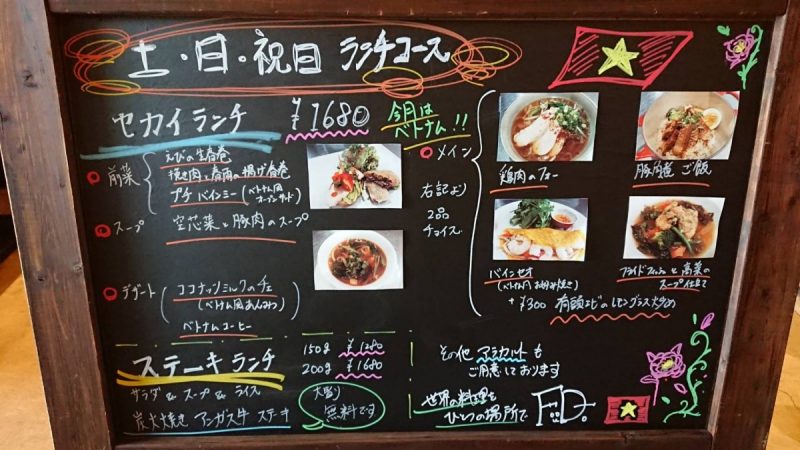 土・日・祝日 ランチコース
セカイランチ ¥1680 今月は
ベトナム!!
前菜
えびの生春巻
挽き肉と春雨の揚げ春巻
プチバインミー(ベトナム風
オープンサンド)
スープ 空芯菜と豚肉のスープ
デザート
ココナッツミルクのチェ
(ベトナム風あんみつ)
ベトナムコーヒー
メイン
右記より
2品
チョイス
鶏肉のフォー
豚肉煮ご飯
バインセオ
(ベトナムお好み焼き)
フライドフィッシュと高菜の
スープ仕立て
+¥300 有頭エビのレモングラス炒め
ステーキランチ
150g ¥1280
200g ¥1680
サラダ & スープ & ライス
炭火焼き アンガス牛 ステーキ
大盛り
無料です
その他 アラカルトも
ご用意しております
世界の料理を
ひとつの場所で
F.D.